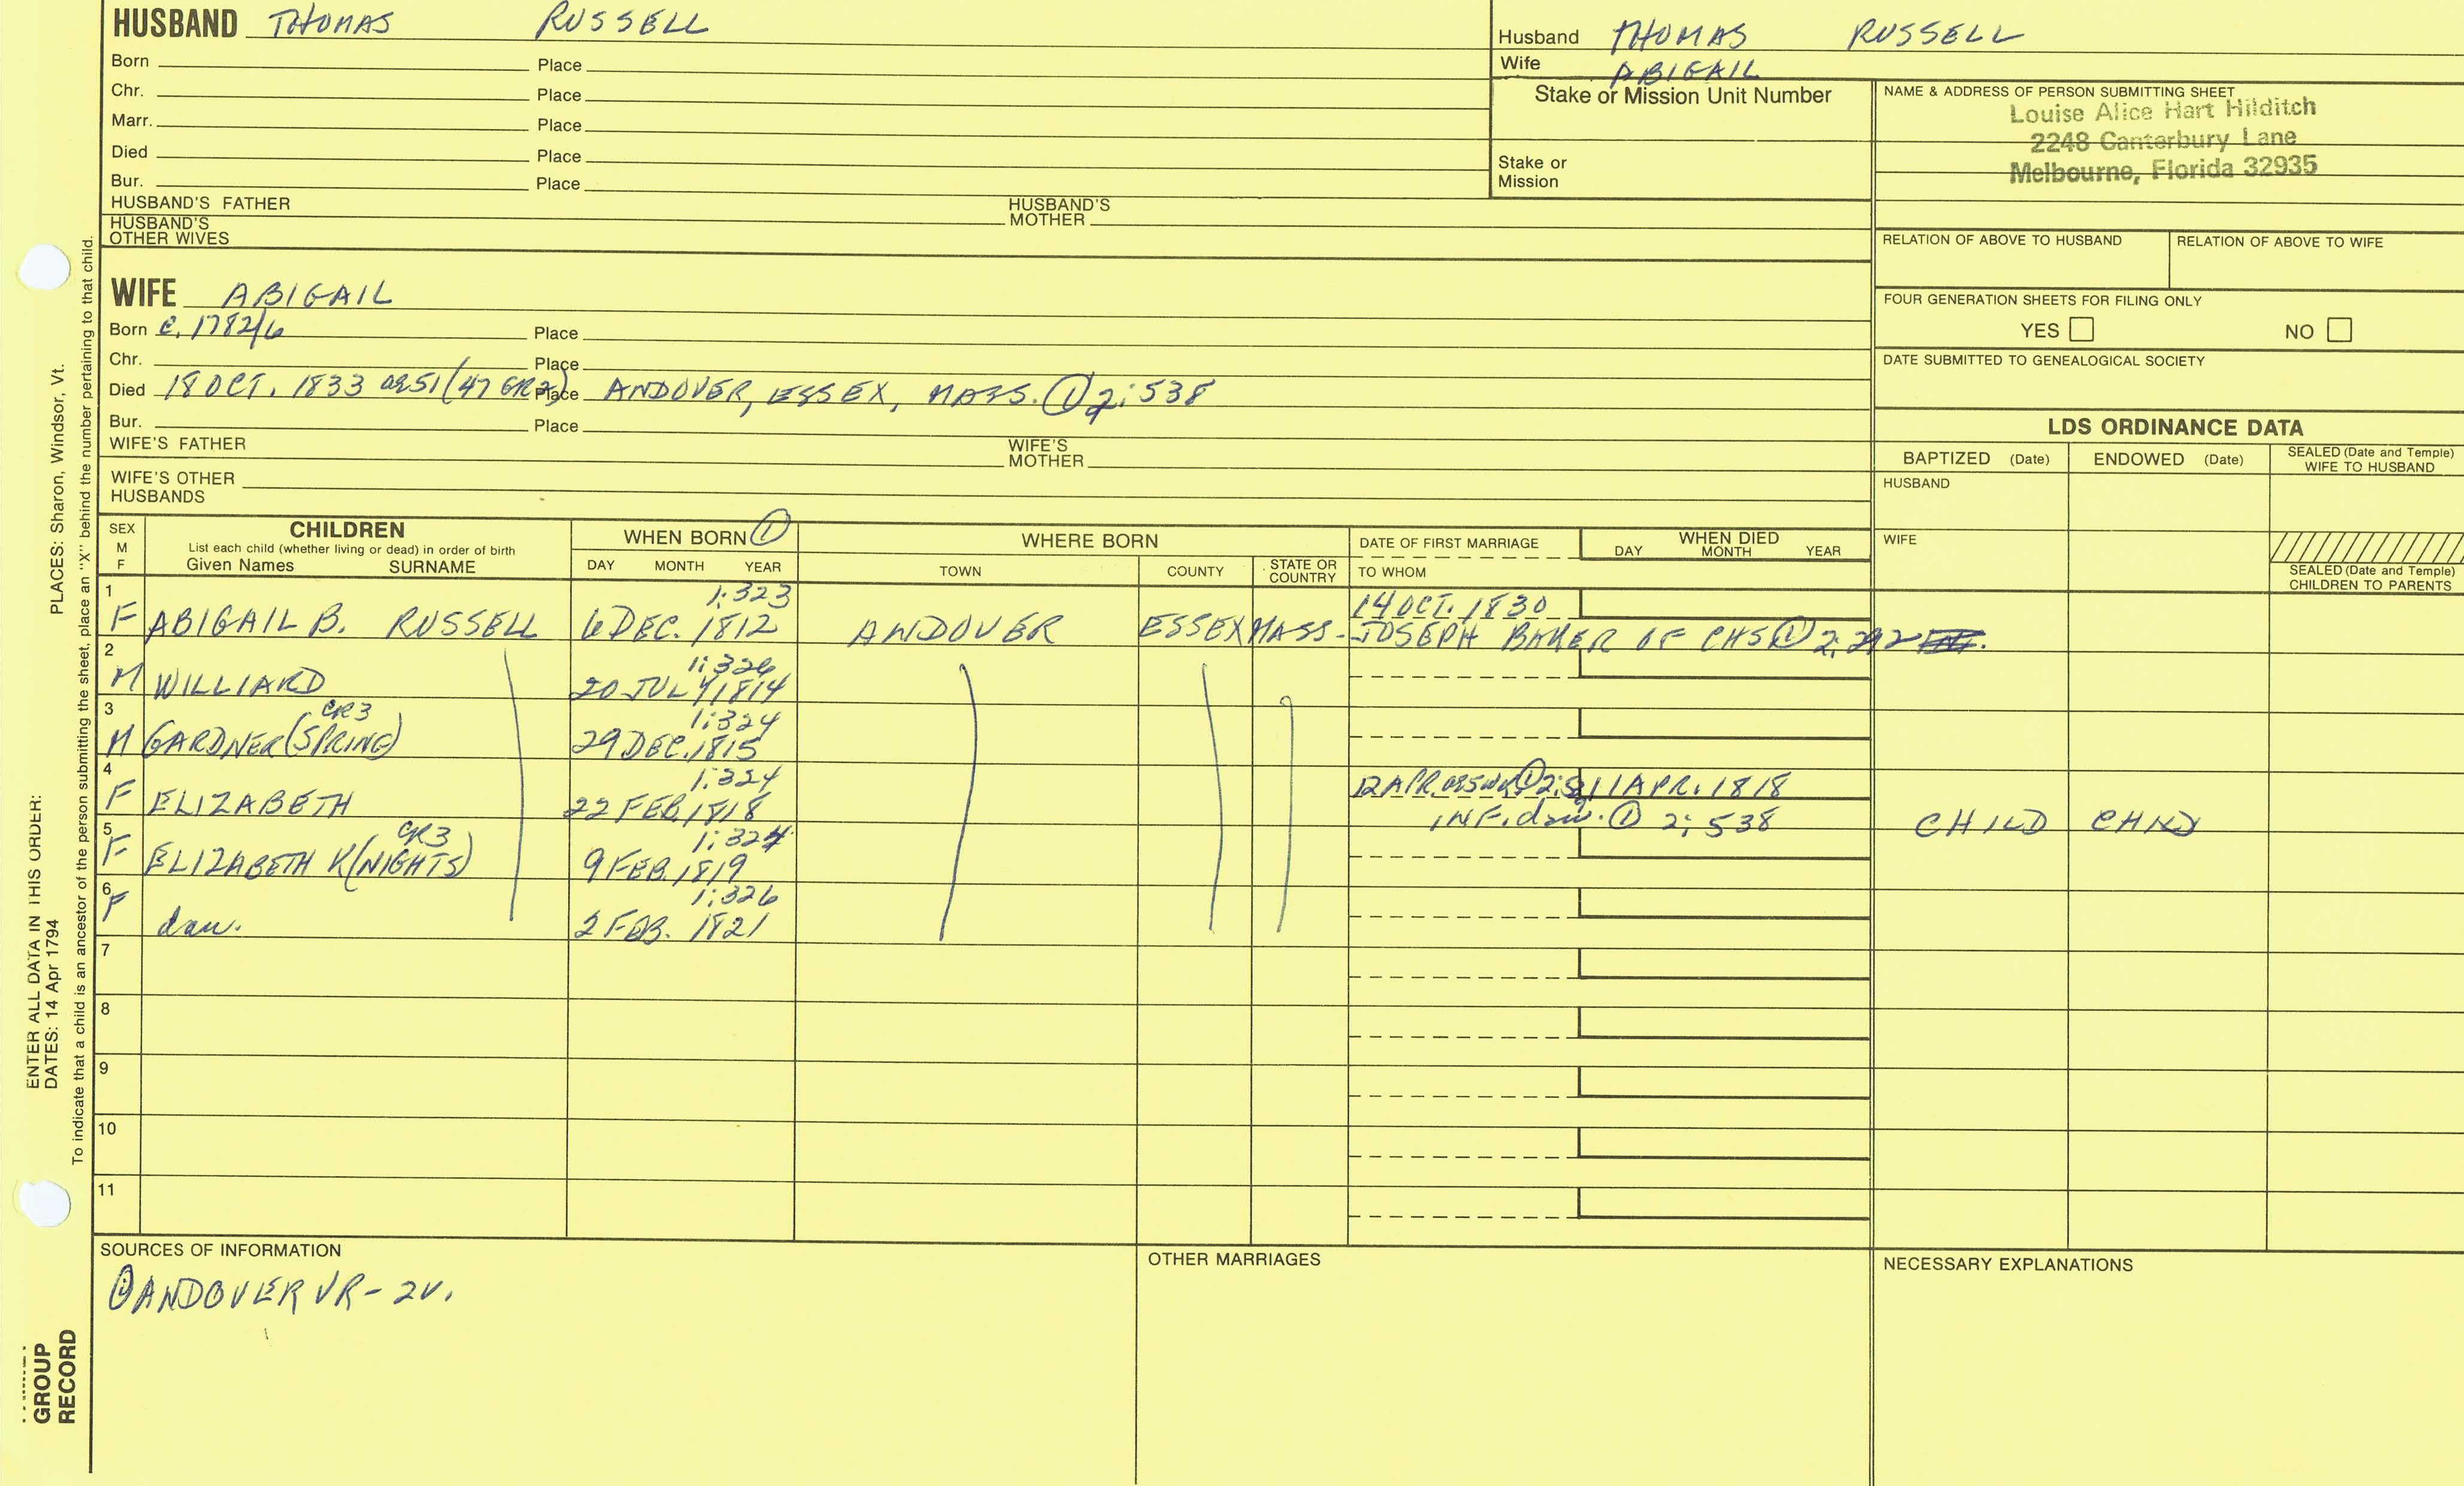 HUSBAND THOMAS RUSSELL
Born Place
Chr. Place
Marr. Place
Died Place
Bur. Place
HUSBAND'S FATHER HUSBAND'S MOTHER
HUSBAND'S OTHER WIVES
Husband THOMAS RUSSELL
Wife ABIGAIL
Stake or Mission Unit Number
Stake or Mission
NAME & ADDRESS OF PERSON SUBMITTING SHEET
Louise Alice Hart Hilditch
2248 Canterbury Lane
Melbourne, Florida 32935
RELATION OF ABOVE TO HUSBAND RELATION OF ABOVE TO WIFE
FOUR GENERATION SHEETS FOR FILING ONLY
YES NO
DATE SUBMITTED TO GENEALOGICAL SOCIETY
WIFE ABIGAIL
Born c. 1782/6 Place
Chr. Place
Died 18 OCT. 1833 ae 51 (47 GR2) Place ANDOVER, ESSEX, MASS. ① 2:538
Bur. Place
WIFE'S FATHER WIFE'S MOTHER
WIFE'S OTHER HUSBANDS
LDS ORDINANCE DATA
BAPTIZED (Date) ENDOWED (Date) SEALED (Date and Temple) WIFE TO HUSBAND
HUSBAND
WIFE
SEALED (Date and Temple) CHILDREN TO PARENTS
SEX M F
CHILDREN
List each child (whether living or dead) in order of birth
Given Names SURNAME
WHEN BORN ①
DAY MONTH YEAR
WHERE BORN
TOWN COUNTY STATE OR COUNTRY
DATE OF FIRST MARRIAGE
TO WHOM
WHEN DIED
DAY MONTH YEAR
1 1:323 14 OCT. 1830
F ABIGAIL B. RUSSELL 6 DEC. 1812 ANDOVER ESSEX MASS- JOSEPH BAKER OF CHS ① 2:292
2 1:326
M WILLIARD 20 JULY 1814
3 CR3 1:324
M GARDNER (SPRING) 29 DEC. 1815
4 1:324 11 APR. 1818
F ELIZABETH 22 FEB. 1818 INF. daw. ① 2:538 CHILD CHILD
5 CR3 1:324
F ELIZABETH K(NIGHTS) 9 FEB. 1819
6 1:326
F daw. 2 FEB. 1821
7
8
9
10
11
SOURCES OF INFORMATION
① ANDOVER VR - 2V.
OTHER MARRIAGES
NECESSARY EXPLANATIONS
ENTER ALL DATA IN THIS ORDER:
DATES: 14 Apr 1794 PLACES: Sharon, Windsor, Vt.
To indicate that a child is an ancestor of the person submitting the sheet, place an "X" behind the number pertaining to that child.
GROUP
RECORD